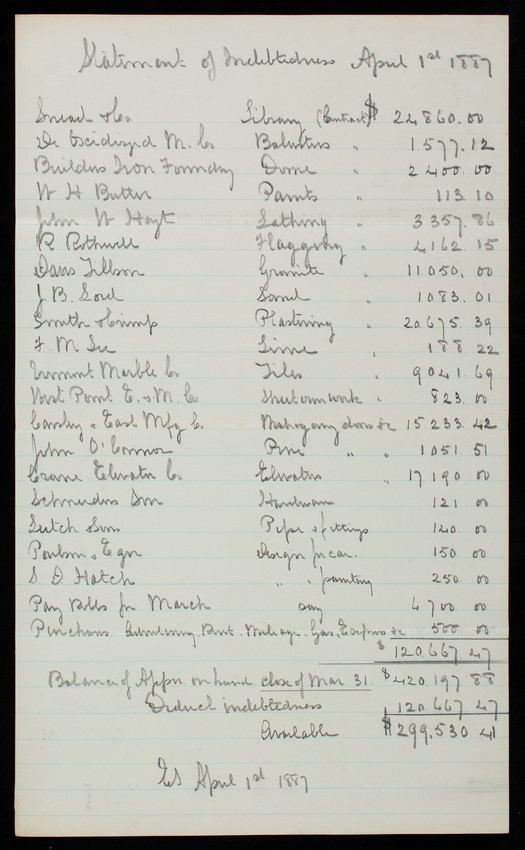 Statement of Indebtedness April 1st 1887
Snead & Co. Library (Contract) $ 22860.00
De Oxidized M. Co Balusters " 1577.12
Builders Iron Foundry Dome " 2400.00
W H Butler Paints " 113 10
John W Hoyt Lathing " 3357.86
R Rothwell Flagging " 4162 15
Davis Tillson Granite " 11.050, 00
J. B. Lord Sand " 1083.01
Smith & Crimp Plastering " 20.675.39
F M Lime " 188 22
Vermont Marble Co. Tiles " 9041.69
West Point E. & M. Co " 823.00
& East Mfg Co. Mahogany doors &c 15 233.42
John O'Connor Pine " " 1051.51
Crane Elevator Co. Elevators " 17190 00
Schneiders Son Hardware 121 00
Leitch & Sons Pipe & fittings 120 00
Poulson & Eger Design for car. 150 00
S. D Hatch " " painting 250 00
Pay Rolls for March say 4700 00
Purchases. Advertising. Rent. Mileage. Gas, &c 500. 00
$ 120667 47
Balance of Appn. on hand close of Mar 31. $420.197 88
Deduct indebtedness 120 667 47
Available $299,530 41
April 1st 1887